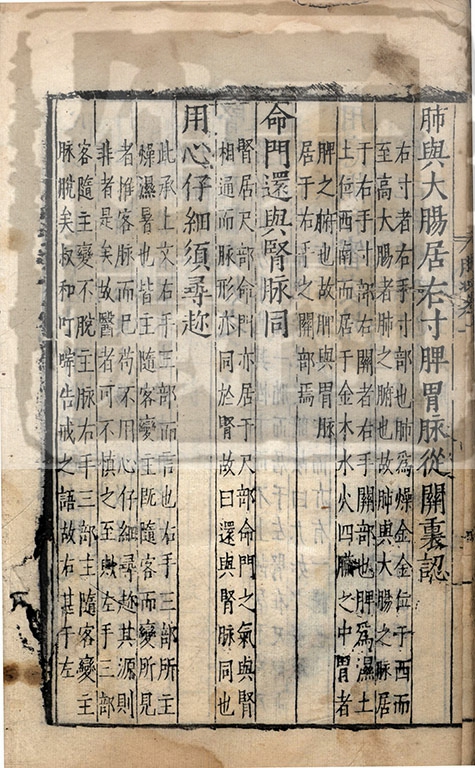 肺與大腸居右寸脾胃脉從關裏認
右寸者右手寸部也肺爲燥金金位于西而
至高大腸者肺之腑也故肺與大腸之脉居
于右手寸部右關者右手關部也脾爲濕土
土位西南而居于金木水火四臟之中胃者
脾之腑也故脾與胃脉
居于右手之關部焉
命門還與腎脉同
腎居尺部命門亦居于尺部命門之氣與腎
相通而脉形亦同於腎故曰還與腎脉同也
用心仔細須尋趂
此承上文右手三部而言也右手三部所主
燥濕暑也皆主隨客變主旣隨客而變所見
者惟客脉而巳苟不用心仔細尋趂其源則
非者是矣故醫者可不慎之至歟左手三部
客隨主變不脫主脉右手三部主隨客變主
脉脫矣叔和叮嚀告戒之語故右甚于左